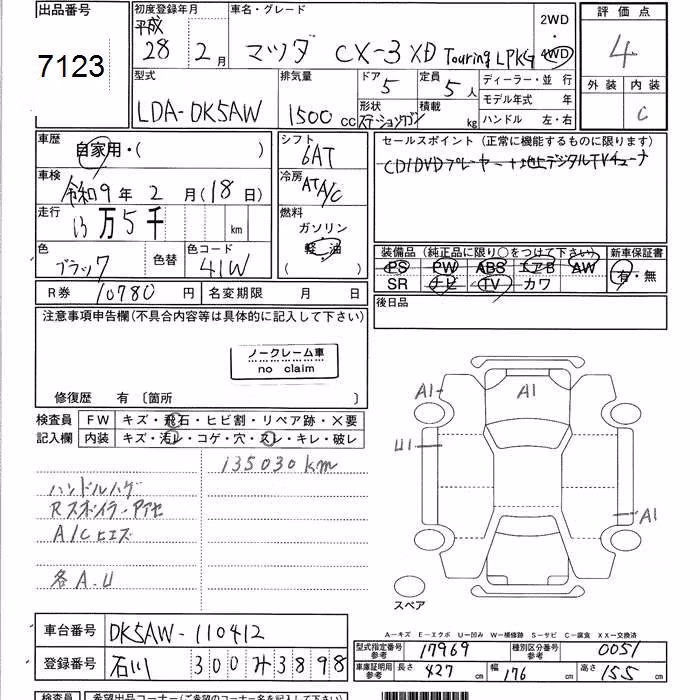 出品番号
7123
初度登録年月
平成
28 年 2 月
車名・グレード
マツダ CX-3 XD Touring L PKG
2WD
・
4WD
評価点
4
外装 内装
C
型式
LDA-DK5AW
排気量
1500 cc
ドア 5
形状
ステーションワゴン
定員
5 人
積載
kg
ディーラー・並行
モデル年式 年
ハンドル 左・右
車歴
自家用・( )
車検
令和9年 2 月(18日)
走行
13 万 5 千 km
色
ブラック
色替
色コード
41W
シフト
6AT
冷房
AT A/C
燃料
ガソリン
軽油
( )
セールスポイント(正常に機能するものに限ります)
CD/DVDプレーヤー+地上デジタルTVチューナ
装備品(純正品に限り○をつけて下さい)
新車保証書
PS PW ABS エアB AW
SR ナビ TV カワ
有・無
R券 10780 円
名変期限 月 日
後日品
注意事項申告欄(不具合内容等は具体的に記入して下さい)
ノークレーム車
no claim
修復歴 有 〔箇所 〕
検査員
記入欄
FW キズ・飛石・ヒビ割・リペア跡・X要
内装 キズ・汚れ・コゲ・穴・スレ・キレ・破レ
135030km
ハンドルハゲ
Rスポイラーアアセ
A/Cヒエズ
各A.U
A1
A1
U1
A1
スペア
A-キズ E-エクボ U-凹み W-補修跡 S-サビ C-腐食 XX-交換済
車台番号
DK5AW-110412
登録番号
石川 300 3898
型式指定番号
参考
17969
種別区分番号
参考
0051
車庫証明用
参考
長さ 427 cm
幅 176 cm
高さ 155 cm
検査員
希望出品コーナー(ご希望のコーナー名を記入して下さい)